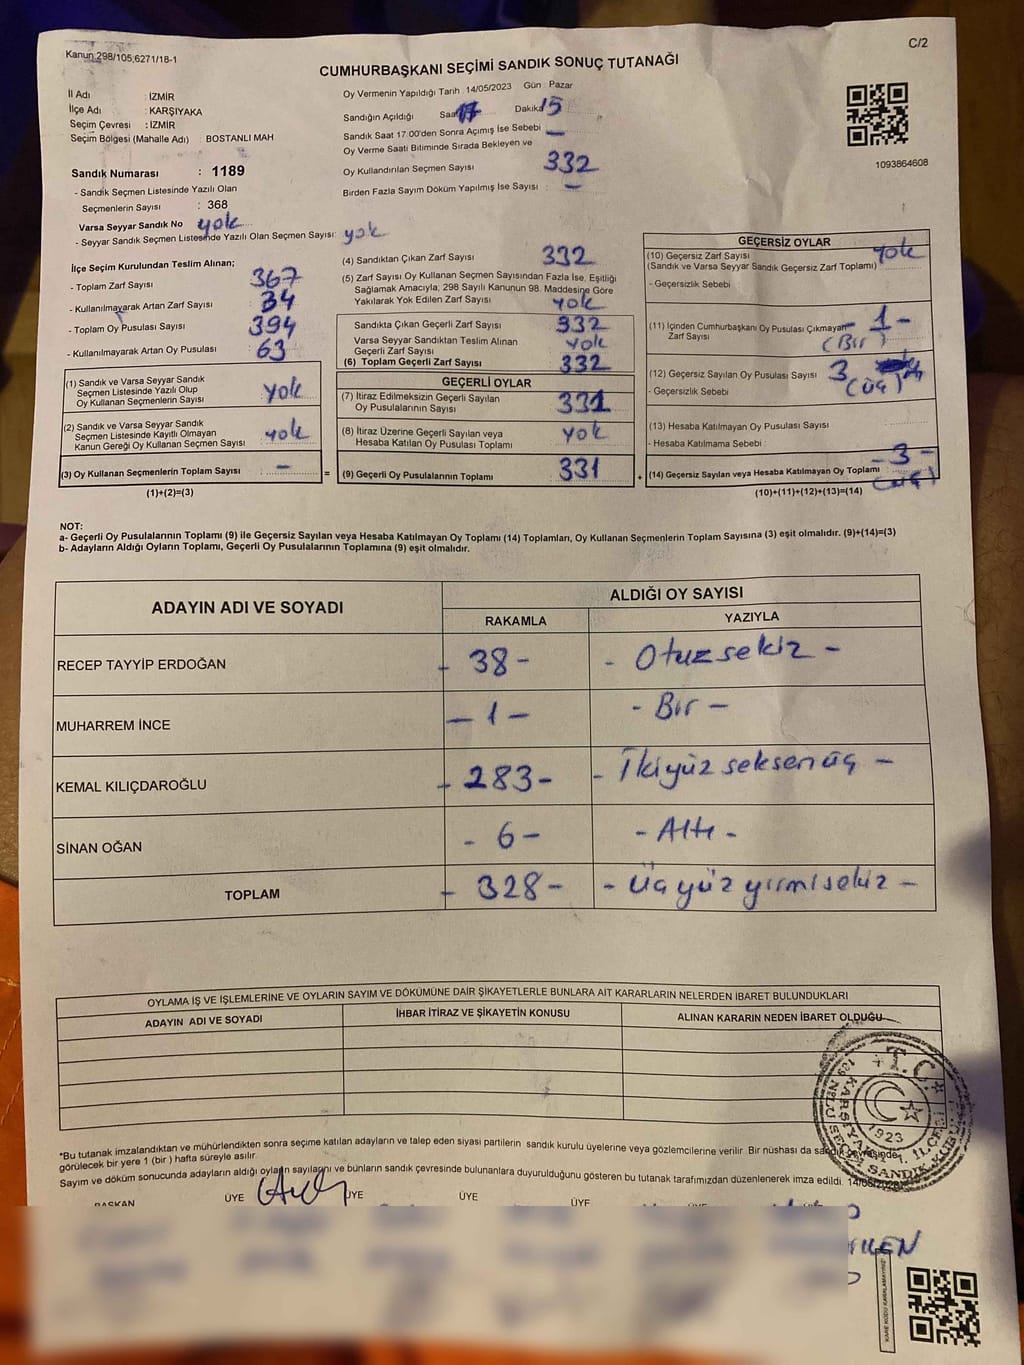 Kanun 298/105,6271/18-1
C/2
CUMHURBAŞKANI SEÇİMİ SANDIK SONUÇ TUTANAĞI
İl Adı : İZMİR
İlçe Adı : KARŞIYAKA
Seçim Çevresi : İZMİR
Seçim Bölgesi (Mahalle Adı) BOSTANLI MAH
Sandık Numarası : 1189
- Sandık Seçmen Listesinde Yazılı Olan
Seçmenlerin Sayısı : 368
Varsa Seyyar Sandık No yok
- Seyyar Sandık Seçmen Listesinde Yazılı Olan Seçmen Sayısı: yok
Oy Vermenin Yapıldığı Tarih 14/05/2023 Gün : Pazar
Sandığın Açıldığı Saat 17 Dakika 15
Sandık Saat 17.00'den Sonra Açımış İse Sebebi —
Oy Verme Saati Bitiminde Sırada Bekleyen ve
Oy Kullandırılan Seçmen Sayısı 332
Birden Fazla Sayım Döküm Yapılmış İse Sayısı : —
1093864608
İlçe Seçim Kurulundan Teslim Alınan;
- Toplam Zarf Sayısı 367
- Kullanılmayarak Artan Zarf Sayısı 34
- Toplam Oy Pusulası Sayısı 394
- Kullanılmayarak Artan Oy Pusulası 63
(1) Sandık ve Varsa Seyyar Sandık
Seçmen Listesinde Yazılı Olup
Oy Kullanan Seçmenlerin Sayısı yok
(2) Sandık ve Varsa Seyyar Sandık
Seçmen Listesinde Kayıtlı Olmayan
Kanun Gereği Oy Kullanan Seçmen Sayısı yok
(3) Oy Kullanan Seçmenlerin Toplam Sayısı — =
(1)+(2)=(3)
(4) Sandıktan Çıkan Zarf Sayısı 332
(5) Zarf Sayısı Oy Kullanan Seçmen Sayısından Fazla İse, Eşitliği
Sağlamak Amacıyla, 298 Sayılı Kanunun 98. Maddesine Göre
Yakılarak Yok Edilen Zarf Sayısı yok
Sandıkta Çıkan Geçerli Zarf Sayısı 332
Varsa Seyyar Sandıktan Teslim Alınan
Geçerli Zarf Sayısı yok
(6) Toplam Geçerli Zarf Sayısı 332
GEÇERLİ OYLAR
(7) İtiraz Edilmeksizin Geçerli Sayılan
Oy Pusulalarının Sayısı 331
(8) İtiraz Üzerine Geçerli Sayılan veya
Hesaba Katılan Oy Pusulası Toplamı yok
(9) Geçerli Oy Pusulalarının Toplamı 331 +
GEÇERSİZ OYLAR
(10) Geçersiz Zarf Sayısı yok
(Sandık ve Varsa Seyyar Sandık Geçersiz Zarf Toplamı)
- Geçersizlik Sebebi
(11) İçinden Cumhurbaşkanı Oy Pusulası Çıkmayan - 1 -
Zarf Sayısı (Bir)
(12) Geçersiz Sayılan Oy Pusulası Sayısı 3
- Geçersizlik Sebebi : (üç)
(13) Hesaba Katılmayan Oy Pusulası Sayısı
- Hesaba Katılmama Sebebi :
(14) Geçersiz Sayılan veya Hesaba Katılmayan Oy Toplamı - 3 -
(10)+(11)+(12)+(13)=(14)
NOT:
a- Geçerli Oy Pusulalarının Toplamı (9) ile Geçersiz Sayılan veya Hesaba Katılmayan Oy Toplamı (14) Toplamları, Oy Kullanan Seçmenlerin Toplam Sayısına (3) eşit olmalıdır. (9)+(14)=(3)
b- Adayların Aldığı Oyların Toplamı, Geçerli Oy Pusulalarının Toplamına (9) eşit olmalıdır.
ADAYIN ADI VE SOYADI ALDIĞI OY SAYISI
RAKAMLA YAZIYLA
RECEP TAYYİP ERDOĞAN - 38 - - Otuzsekiz -
MUHARREM İNCE - 1 - - Bir -
KEMAL KILIÇDAROĞLU - 283 - - İkiyüz seksenüç -
SİNAN OĞAN - 6 - - Altı -
TOPLAM - 328 - - Üçyüz yirmisekiz -
OYLAMA İŞ VE İŞLEMLERİNE VE OYLARIN SAYIM VE DÖKÜMÜNE DAİR ŞİKAYETLERLE BUNLARA AİT KARARLARIN NELERDEN İBARET BULUNDUKLARI
ADAYIN ADI VE SOYADI İHBAR İTİRAZ VE ŞİKAYETİN KONUSU ALINAN KARARIN NEDEN İBARET OLDUĞU
T.C.
1923
*Bu tutanak imzalandıktan ve mühürlendikten sonra seçime katılan adayların ve talep eden siyasi partilerin sandık kurulu üyelerine veya gözlemcilerine verilir. Bir nüshası da sandık çevresinde
görülecek bir yere 1 (bir) hafta süreyle asılır.
Sayım ve döküm sonucunda adayların aldığı oyların sayılarını ve bunların sandık çevresinde bulunanlara duyurulduğunu gösteren bu tutanak tarafımızdan düzenlenerek imza edildi.
BAŞKAN ÜYE ÜYE ÜYE ÜYE